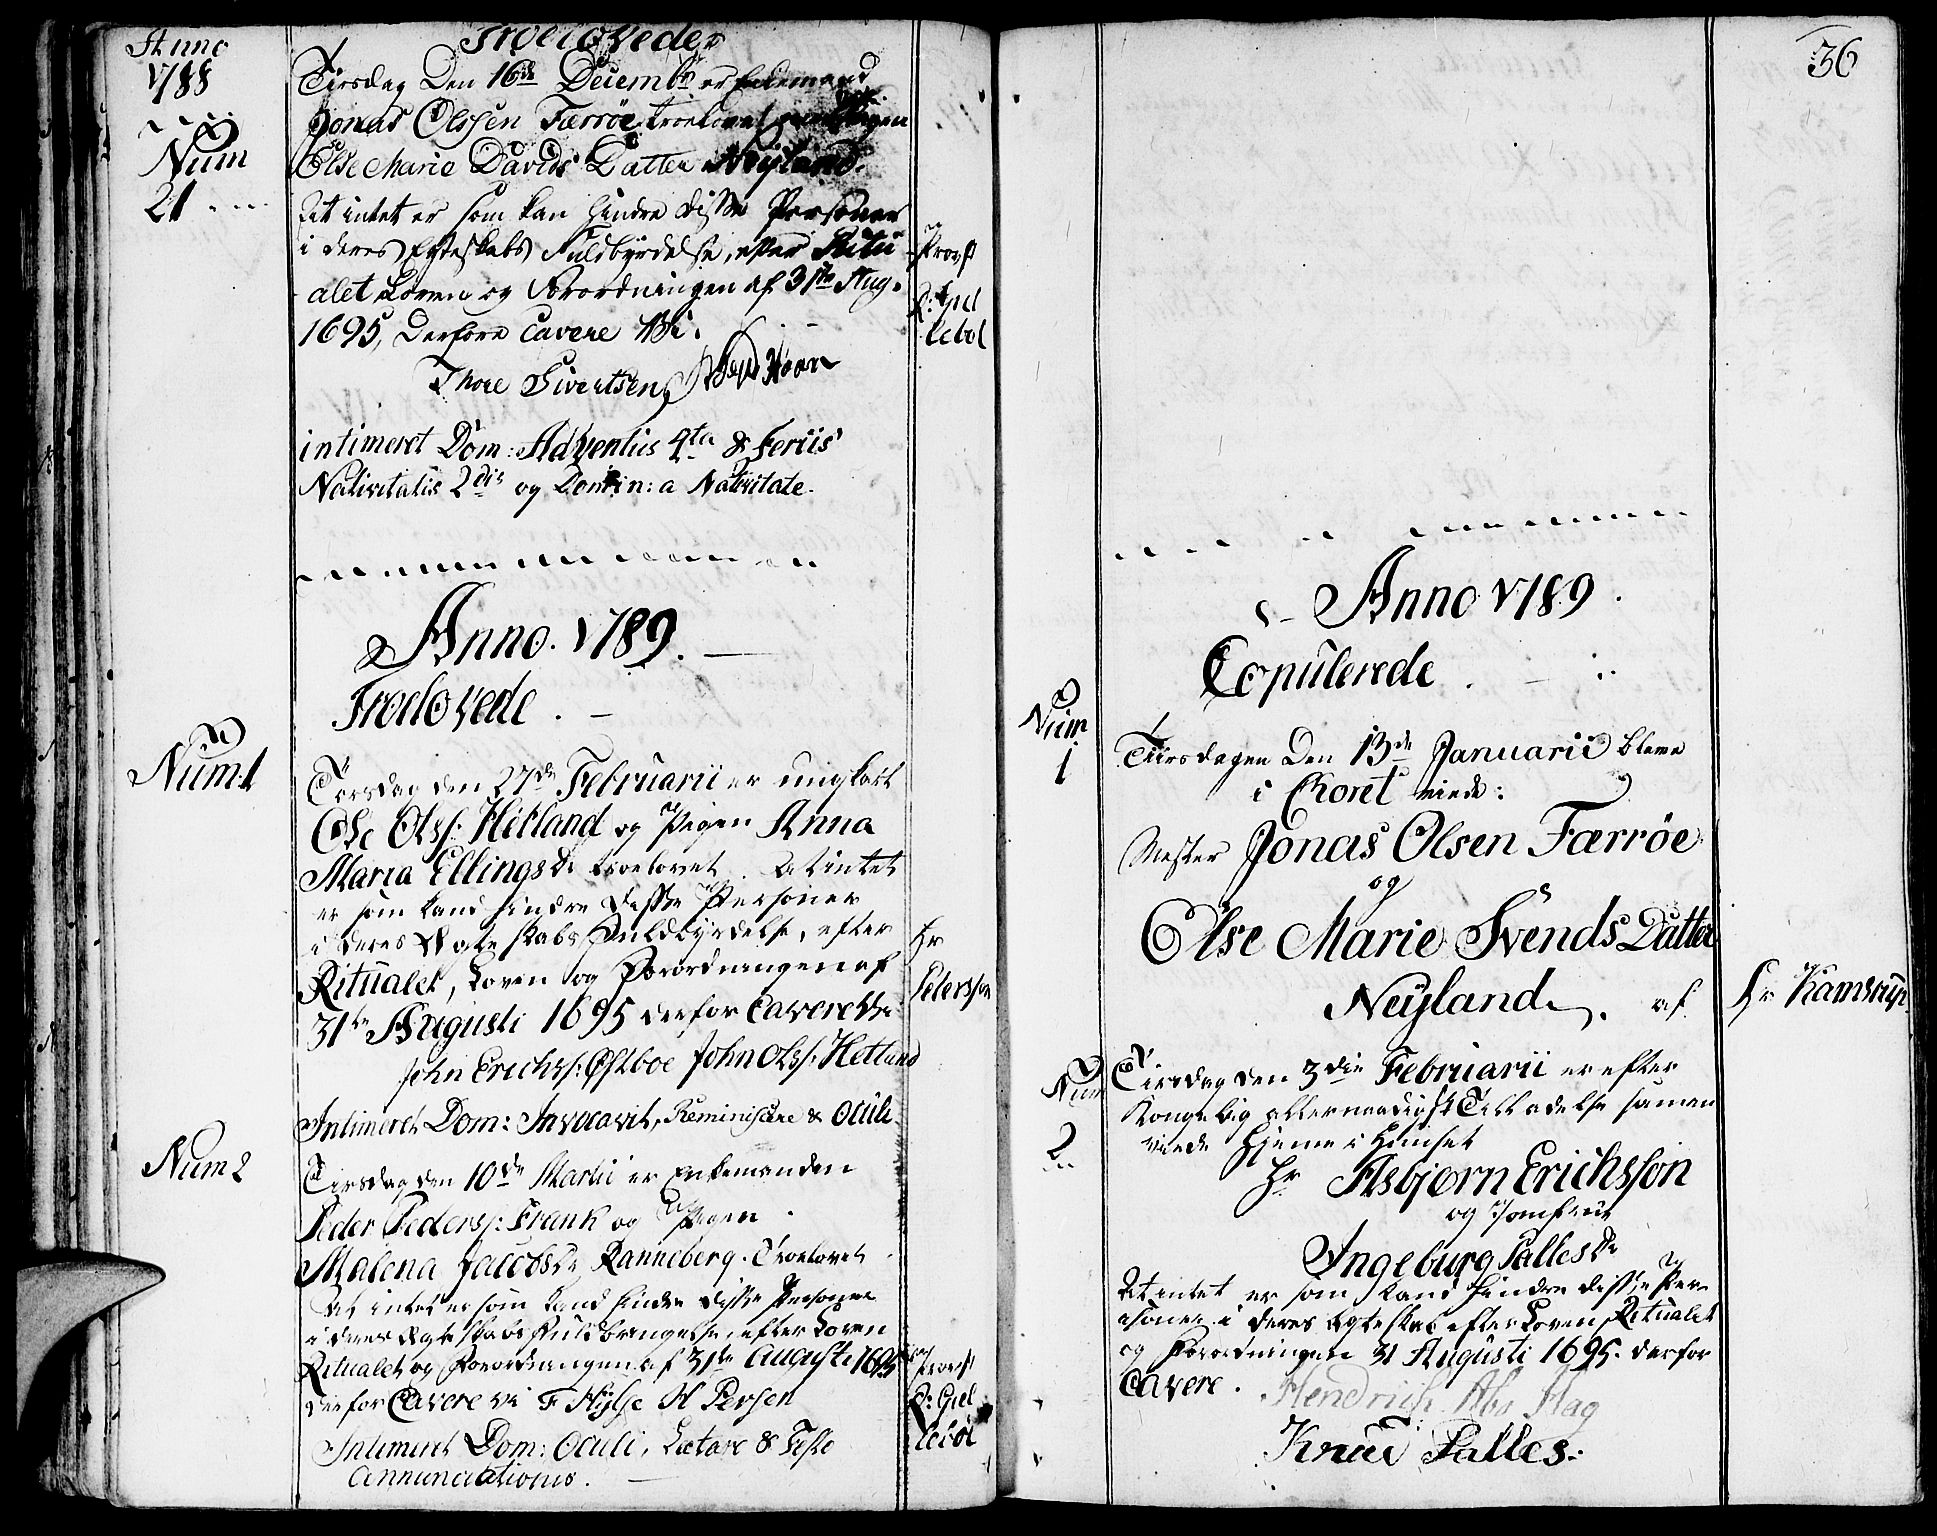 Anno
1788
Troelovede
Num
21
Tirsdag Den 16de Decembr er Enkemand
Jonas Olssen Færröe troelovet
Else Marie Davids Datter Neyland.
At intet er som kan hindre disse Personer
i deres Egteskabs Fuldbyrdelse, efter Ritu
alet Loven og Forordningen af 31te Aug.
1695, derfore Cavere Vi.
Thore Sivertsen
intimeret Dom: Adventus 4ta & Feriis
Nativitatis 2dis og Domin: a Nativitate.
Provst
R: Giel
lebøl
Anno. 1789.
Troelovede.
Num: 1
Torsdag den 27de Februarii er ungkarl
Ole Olss: Hetland og Pigen Anna
Maria Ellings Dr troelovet. At intet
er som kand hindre disse Personer
i deres Ægteskabs Fuldbyrdelse, efter
Ritualet, Loven og Forordningen af
31te Augusti 1695 derfor Cavere Vi
John Erichss: Østboe John Olss: Hetland
Intimeret Dom: Invocavit, Reminiscere & Oculi.
Hr
Peterssøn
Num 2
Tirsdag den 10de Martii er Enkemanden
Peder Pederss: Frank og Pigen
Malena Jacobs Dr Ranneberg. Troelovet
At intet er som kand hindre disse Personer
i deres Ægteskabs Fuldbringelse, efter Loven
Ritualet og Forordningen af 31te Augusti 1695
derfor Cavere vi F Hylse H Persen
Intimeret Dom: Oculi, Lætare & Festo
Annunciationis.
Provst
R: Giel
lebøl
36
Anno 1789.
Copulerede
Num
1
Tiirsdagen Den 13de Januarii bleve
i Choret viede:
Mester Jonas Olsen Færröe
og
Else Marie Svends Datter
Neyland. af
Hr Kamstrup.
Num
2
Tirsdag den 3die Februarii er efter
Kongelig allernaadigst Tilladelse samen
viede hjemme i Huuset
Hr Asbjørn Erichssøn
og Jomfrue
Ingeburg Palles Dr
At intet er som kand hindre disse Per
soner i deres Ægteskab efter Loven, Ritualet
og Forordningen 31 Augusti 1695. derfor
Cavere. Hendrich
Knud Palles: